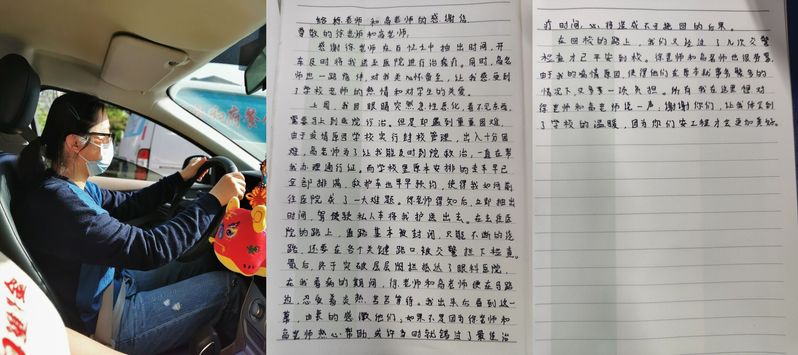 给徐老师和高老师的感谢信
尊敬的徐老师和高老师:
感谢徐老师在百忙之中抽出时间,开
车及时将我送至医院进行治疗。同时,高老
师也一路陪伴,对我关怀备至,让我感受到
了学校老师的热情和对学生的关爱。
上周,我因眼睛突然急性恶化,看不见东西,
需要马上到医院治疗。但是却遇到重重困难,
由于疫情原因学校实行封校管理,出入十分困
难,高老师为了让我能及时到院救治,一直在帮
我办理通行证。而学校里原本安排的专车早已
全部排满,救护车也早早预约,使得我如何前
往医院成了一大难题。徐老师得知后,立即抽出
时间,驾驶私人车将我护送出去。在去往医
院的路上,道路基本被封闭,只能不断的绕
路,还要在各个关键路口被交警拦下检查。
最后,终于突破层层阻拦抵达了眼科医院,
在我看病的期间,徐老师和高老师便在马路
边,忍受着炎热,苦苦等待。我出来后看到这一
幕,由衷的感激他们,如果不是因为徐老师和
高老师热心帮助,或许当时就错过了最佳治
疗时间,必将造成不可挽回的后果。
在回校的路上,我们又经过了几次交警
检查才已平安到校。徐老师和高老师也很劳累,
由于我的病情原因,使得他们在原本就事务繁多的
情况下,又多了一项负担。所有我在这里想对
徐老师和高老师说一声,谢谢你们,让我体会到
了学校的温暖,因为你们安工程才会更加美好。